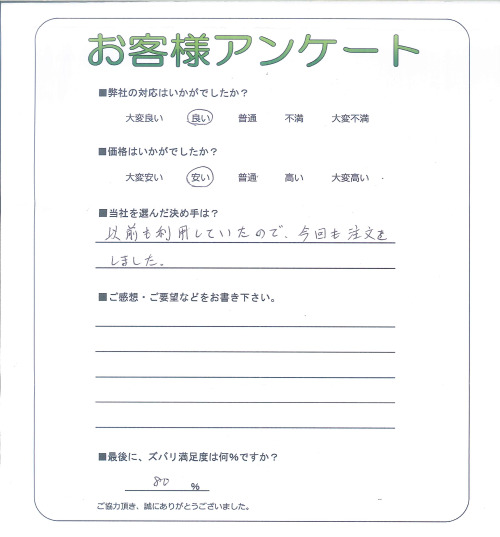 お客様アンケート
■弊社の対応はいかがでしたか？
大変良い 良い 普通 不満 大変不満
■価格はいかがでしたか？
大変安い 安い 普通 高い 大変高い
■当社を選んだ決め手は？
以前も利用していたので、今回も注文を
しました。
■ご感想・ご要望などをお書き下さい。
■最後に、ズバリ満足度は何%ですか？
80 %
ご協力頂き、誠にありがとうございました。